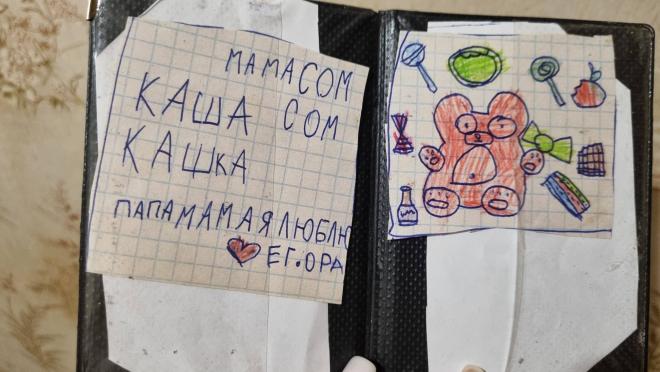 МАМАСОМ
КАША СОМ
КАШКА
ПАПАМАМАЯЛЮБЛЮ
ЕГ.ОРА